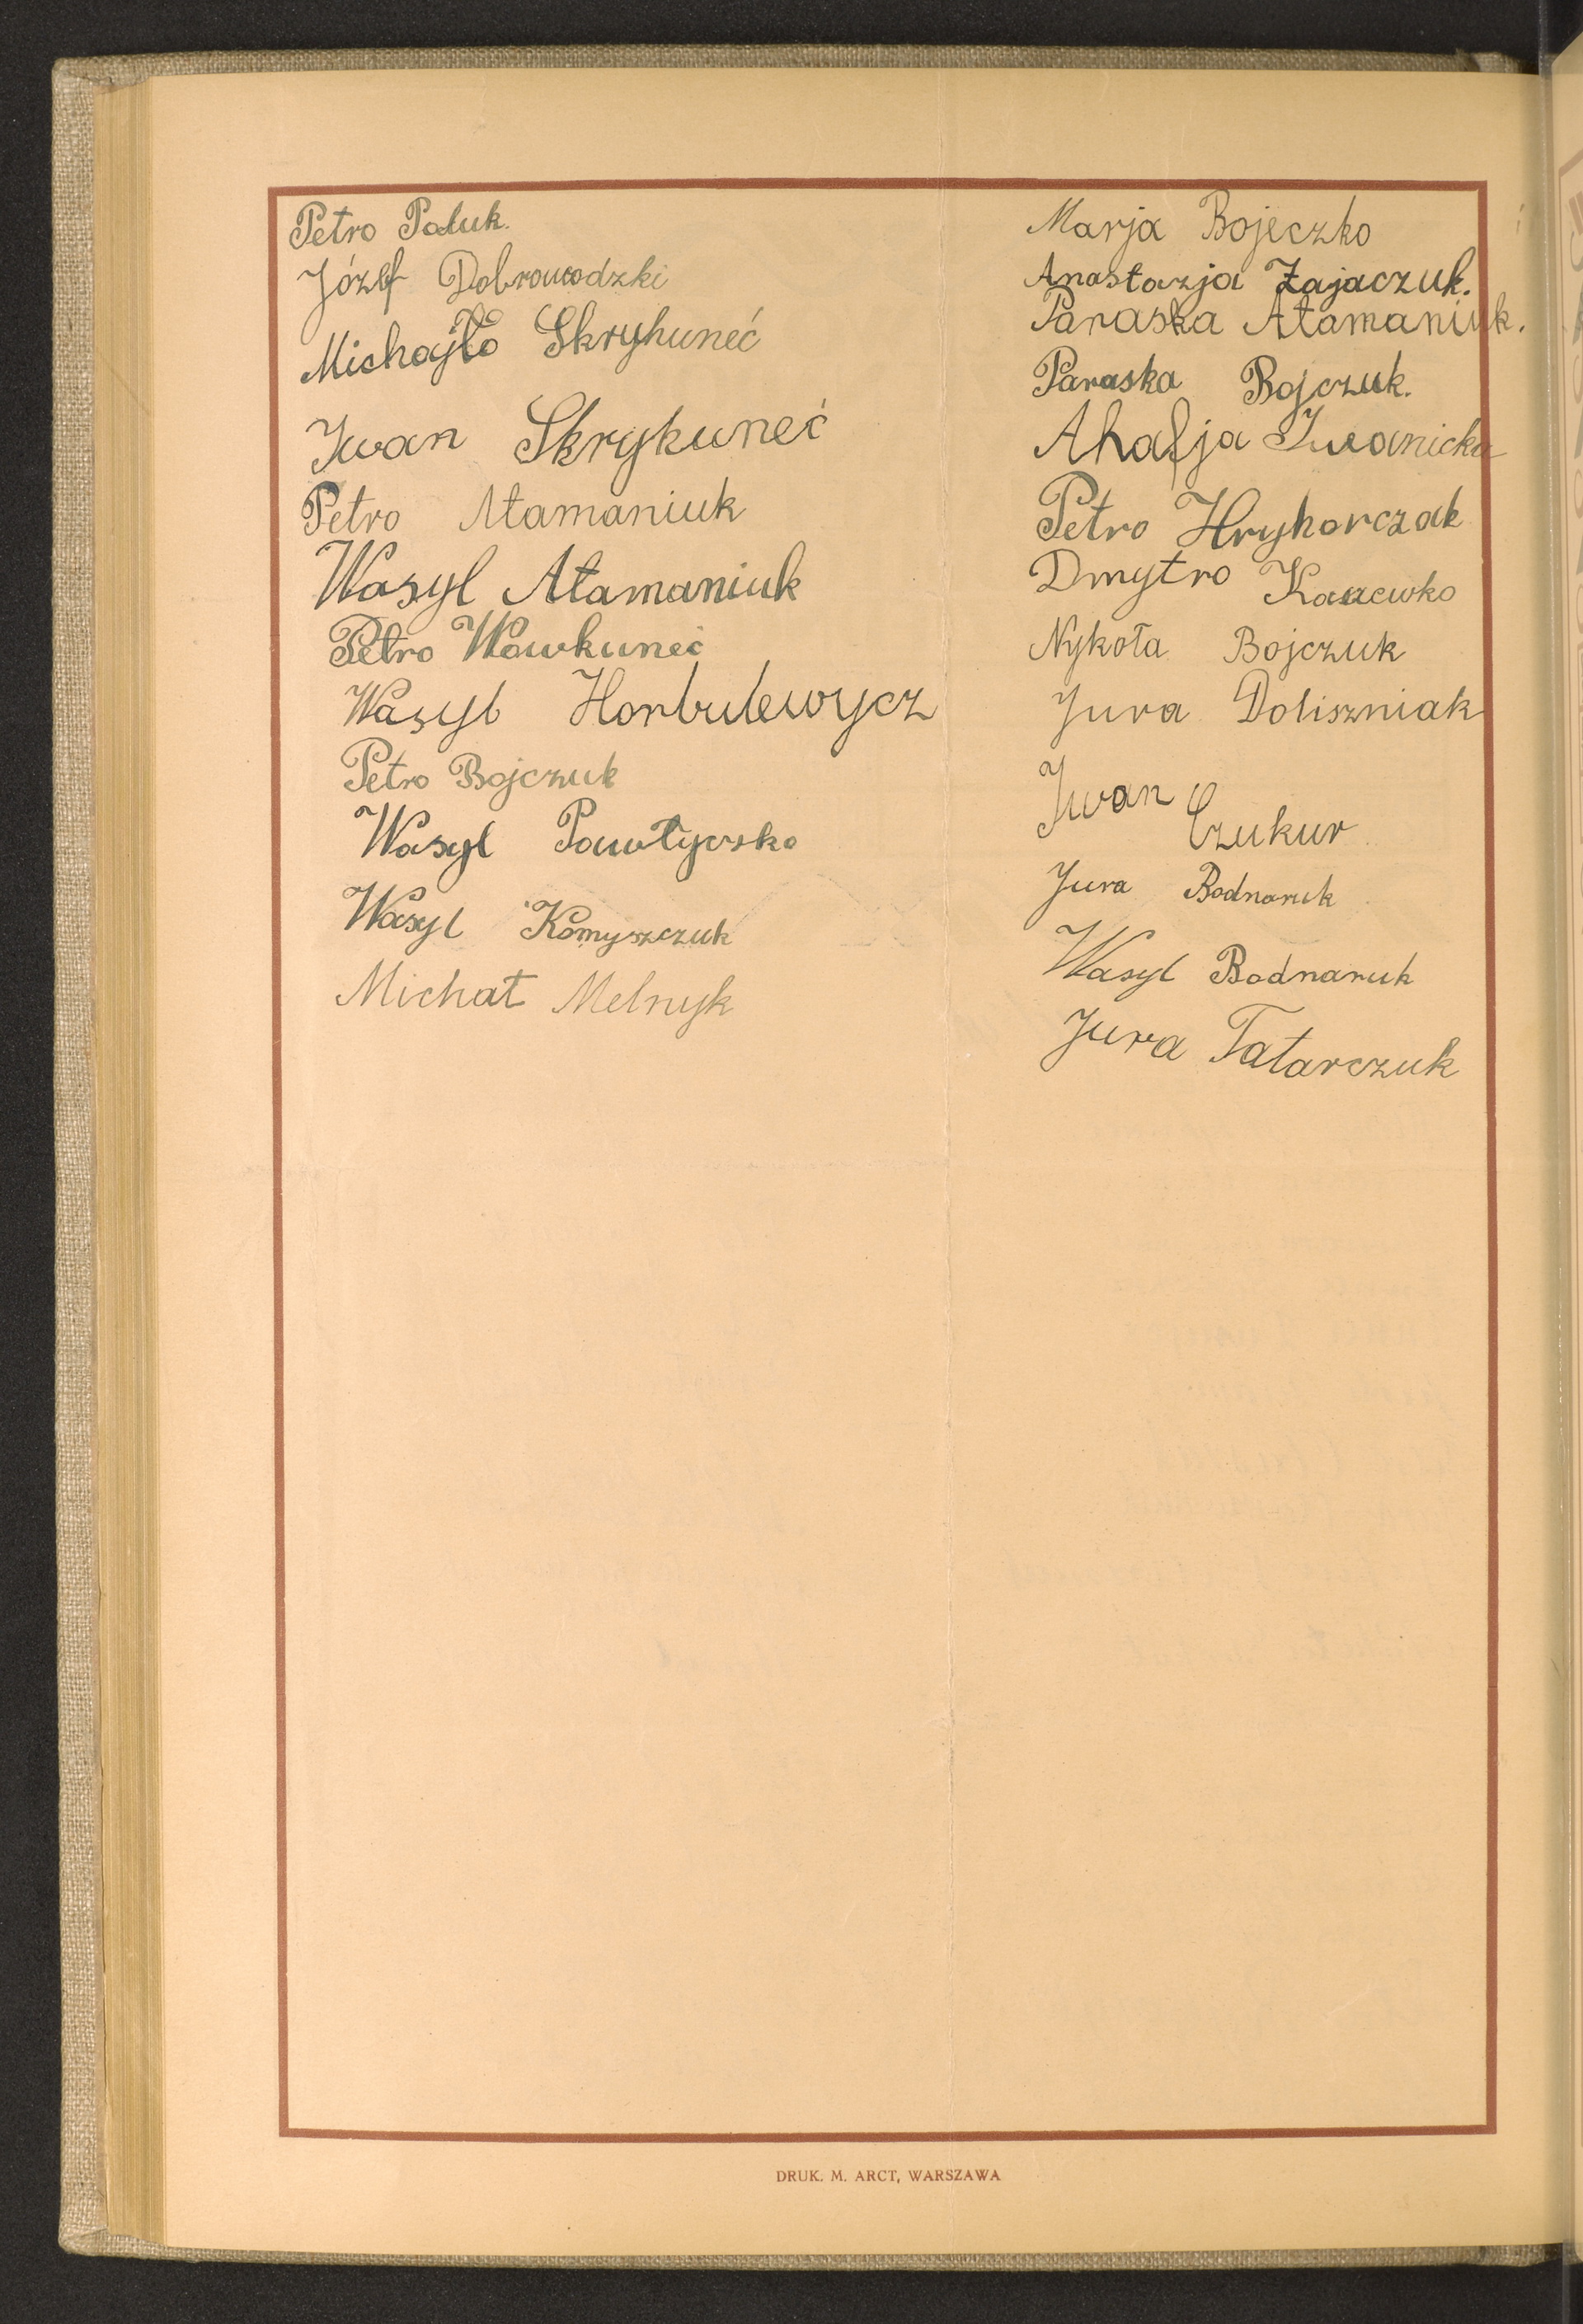 Petro Paluk.
Józef Dobrowodzki
Michajło Skryhuneć
Iwan Skrykuneć
Petro Atamaniuk
Wasyl Atamaniuk
Petro Wawkuneć
Wasyl Horbulewycz
Petro Bojczuk
Wasyl
Wasyl Komyszczuk
Michał Melnyk
Marja Bojeczko
Anastazja Zajaczuk.
Paraska Atamaniuk.
Paraska Bojczuk.
Ahafja Iwanicka
Petro Hryhorczak
Dmytro
Nykoła Bojczuk
Jura Doliszniak
Iwan Czukur
Jura Bodnaruk
Wasyl Bodnaruk
Jura Tatarczuk
DRUK. M. ARCT, WARSZAWA